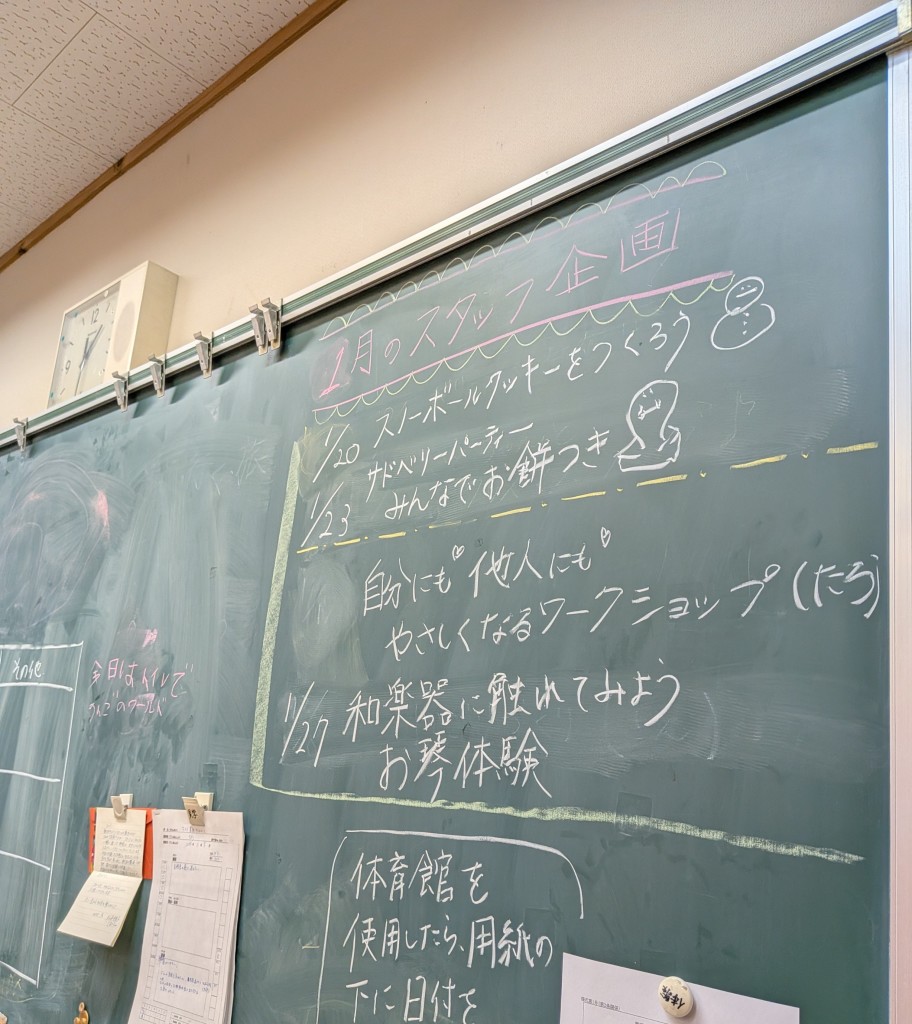 1月のスタッフ企画
1/20 スノーボールクッキーをつくろう
サドベリーパーティー
1/23 みんなでお餅つき
自分にも♡他人にも♡
やさしくなるワークショップ(たろ)
1/27 和楽器に触れてみよう
お琴体験
その他
今日はトイレで
りんごのワールド
体育館を
使用したら、用紙の
下に日付を
体験